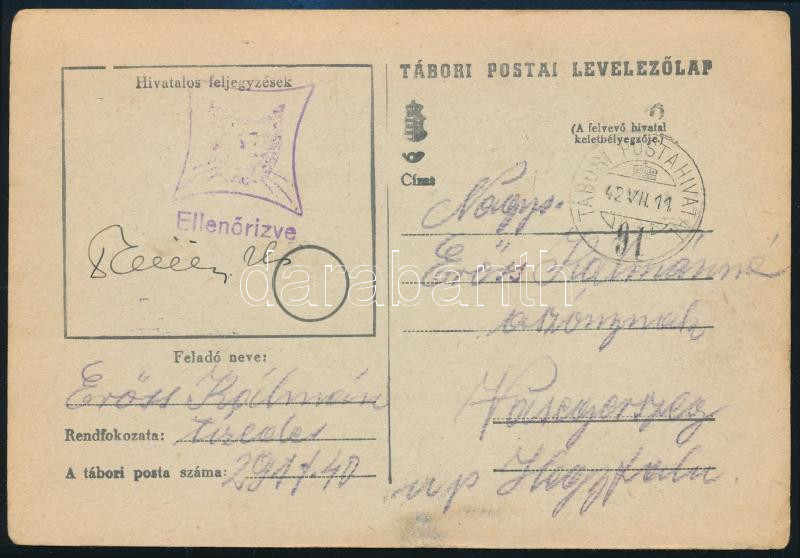 Hivatalos feljegyzések
Ellenőrizve
Feladó neve:
Erőss Kálmán
Rendfokozata: tizedes
A tábori posta száma: 291/40
TÁBORI POSTAI LEVELEZŐLAP
(A felvevő hivatal
keletbélyegzője.)
TÁBORI POSTAHIVATAL
42 VII. 11
91
Címe
Nagys.
Erőss Kálmánné
Vasegerszeg
up Hegyfalu.
darabanth